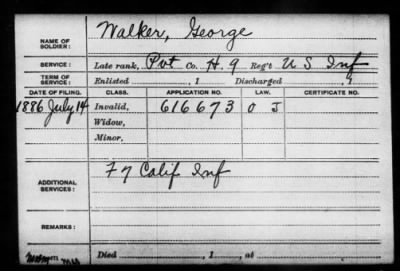 NAME OF SOLDIER: Walker, George
SERVICE: Late rank, Pvt Co. H. 9 Reg't U S Inf
TERM OF SERVICE: Enlisted , 1 Discharged , 1
DATE OF FILING. CLASS. APPLICATION NO. LAW. CERTIFICATE NO.
1886 July 14 Invalid, 616673 O J
Widow,
Minor,
ADDITIONAL SERVICES: F 7 Calif Inf
REMARKS:
Died , 1 , at